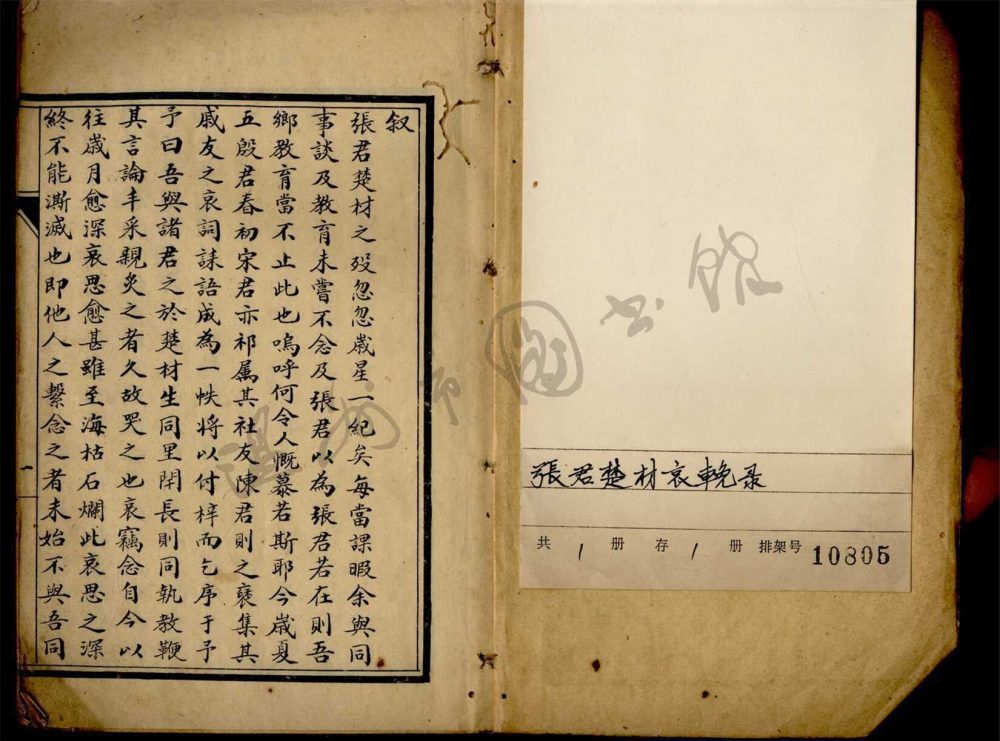 叙
張君楚材之歿忽忽歲星一紀矣每當課暇余與同
事談及教育未嘗不念及張君以為張君若在則吾
鄉教育當不止此也嗚呼何令人慨慕若斯耶今歲夏
五殷君春初宋君亦祁属其社友陳君則之裒集其
戚友之哀詞誄語成為一帙將以付梓而乞序于予
予曰吾與諸君之於楚材生同里閈長則同執教鞭
其言論丰采親炙之者久故哭之也哀竊念自今以
往歲月愈深哀思愈甚雖至海枯石爛此哀思之深
終不能澌滅也即他人之繫念之者未始不與吾同
張君楚材哀輓录
共 1 册 存 1 册 排架号 10805
市圖书館